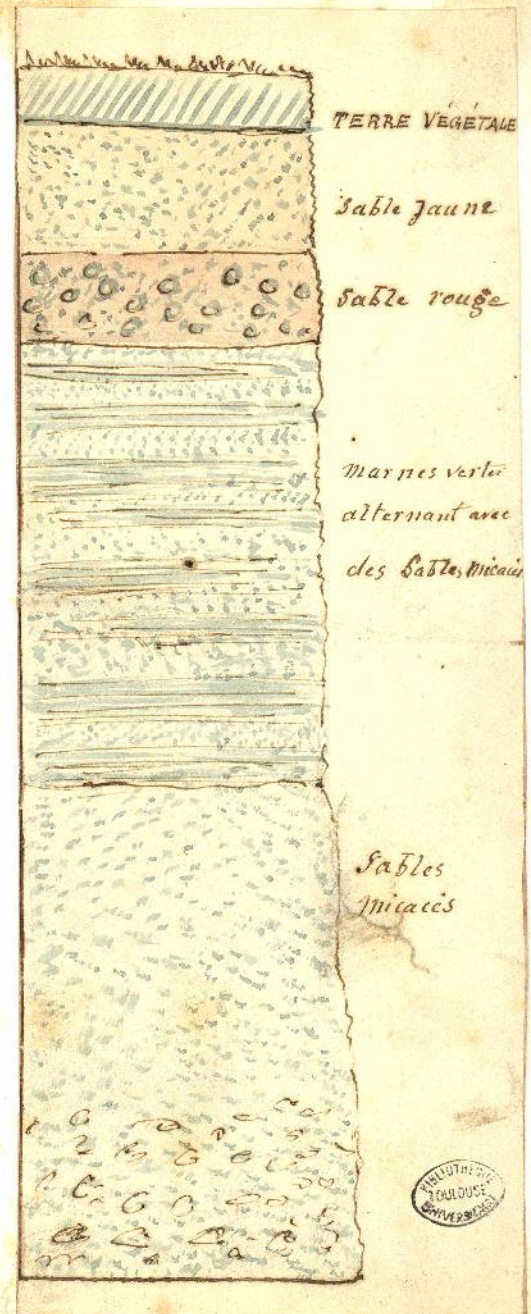 TERRE VÉGÉTALE
Sable Jaune
Sable rouge
marnes vertes
alternant avec
des Sables micacés
Sables
micacés
BIBLIOTHÈQUE
TOULOUSE
UNIVERSITAIRE